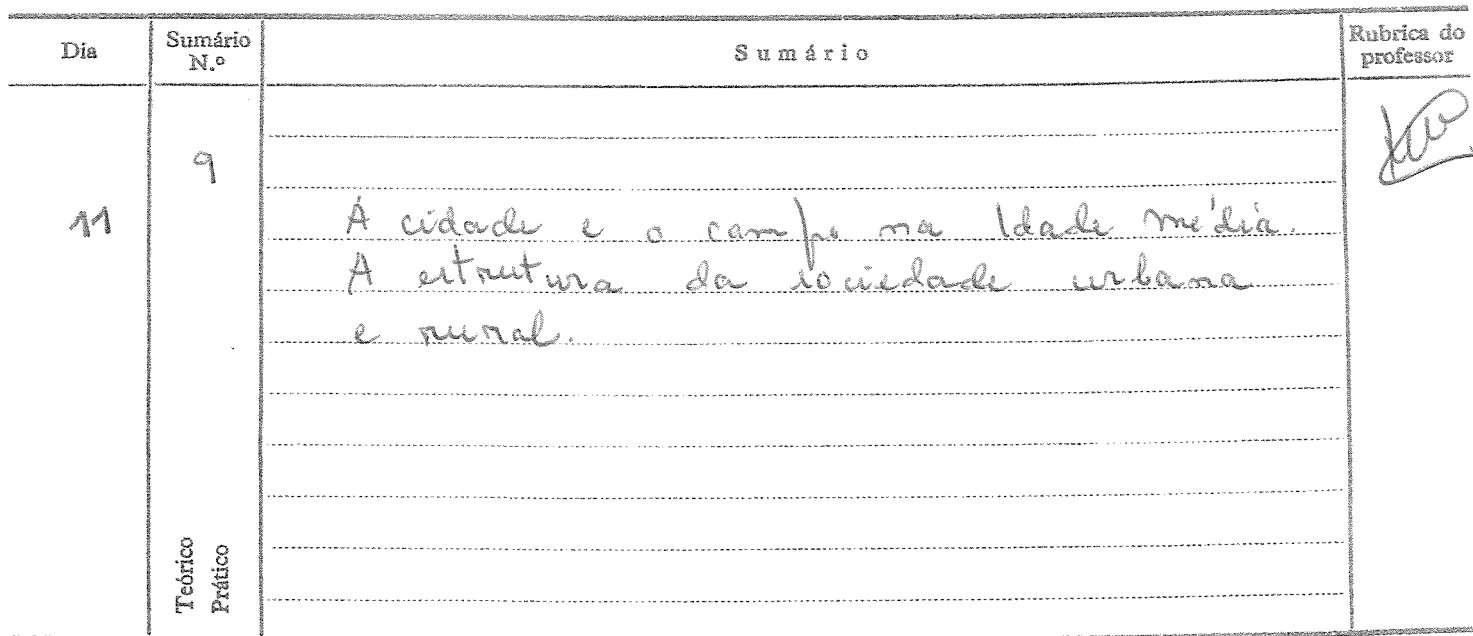 Dia
Sumário N.º
Sumário
Rubrica do professor
9
11
A cidade e o campo na Idade média.
A estrutura da sociedade urbana
e rural.
Teórico
Prático